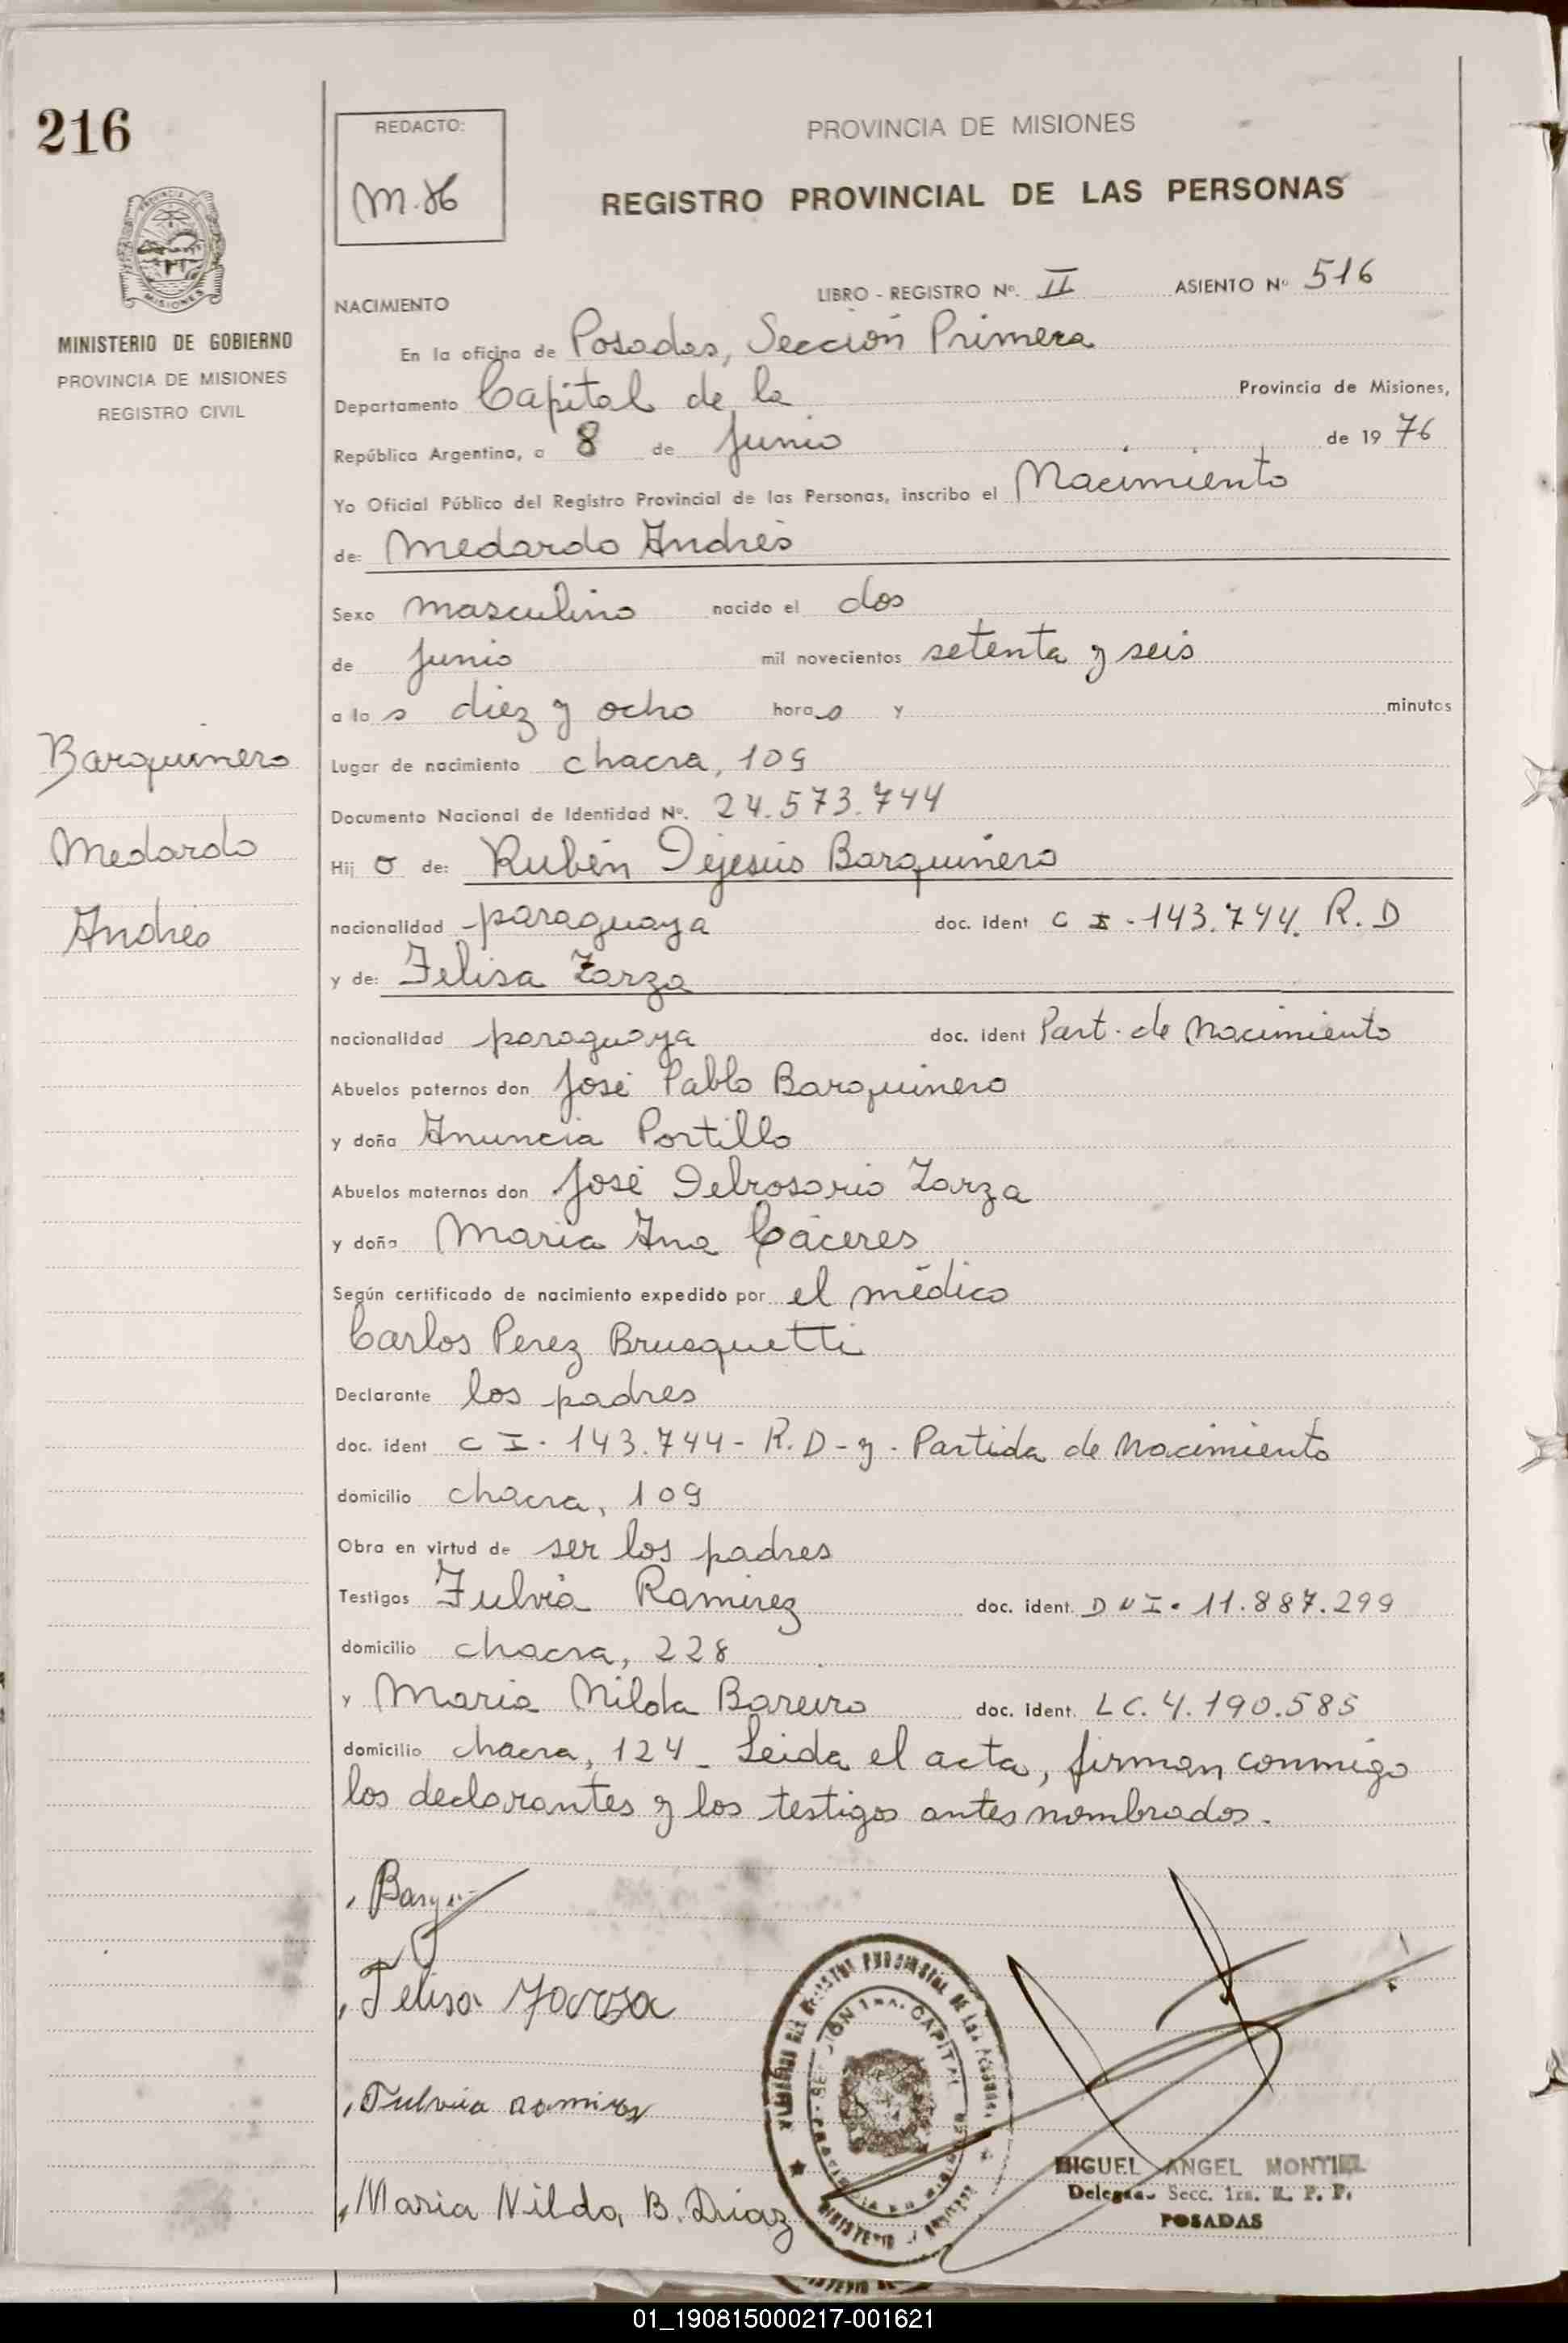 216
REDACTO:
M.J6
PROVINCIA DE MISIONES
REGISTRO PROVINCIAL DE LAS PERSONAS
MISIONES
MINISTERIO DE GOBIERNO
PROVINCIA DE MISIONES
REGISTRO CIVIL
NACIMIENTO
LIBRO - REGISTRO Nº. II ASIENTO Nº 516
En la oficina de Posadas, Sección Primera
Departamento Capital de la Provincia de Misiones,
República Argentina, a 8 de Junio de 1976
Yo Oficial Público del Registro Provincial de las Personas, inscribo el Nacimiento
de: Medardo Andrés
Sexo masculino nacido el dos
de Junio mil novecientos setenta y seis
a las diez y ocho horas y minutos
Barquinero
Medardo
Andrés
Lugar de nacimiento chacra, 109
Documento Nacional de Identidad Nº. 24.573.744
Hijo de: Rubén Dejesús Barquinero
nacionalidad paraguaya doc. ident C I - 143.744. R.D
y de: Felisa Zarza
nacionalidad paraguaya doc. ident Part. de Nacimiento
Abuelos paternos don José Pablo Barquinero
y doña Anuncia Portillo
Abuelos maternos don José Delrosario Zarza
y doña Maria Ana Cáceres
Según certificado de nacimiento expedido por el médico
Carlos Perez Brusquetti
Declarante los padres
doc. ident C I - 143.744 - R.D - y - Partida de Nacimiento
domicilio chacra, 109
Obra en virtud de ser los padres
Testigos Fulvia Ramirez doc. ident. D N I - 11.887.299
domicilio chacra, 228
y Maria Nilda Bareiro doc. ident. LC. 4.190.585
domicilio chacra, 124 - Leida el acta, firman conmigo
los declarantes y los testigos antes nombrados.
Felisa Zarza
Fulvia Ramirez
Maria Nilda B. Diaz
MIGUEL ANGEL MONTIEL
Delegado Secc. 1ra. R. P. P.
POSADAS
01_190815000217-001621